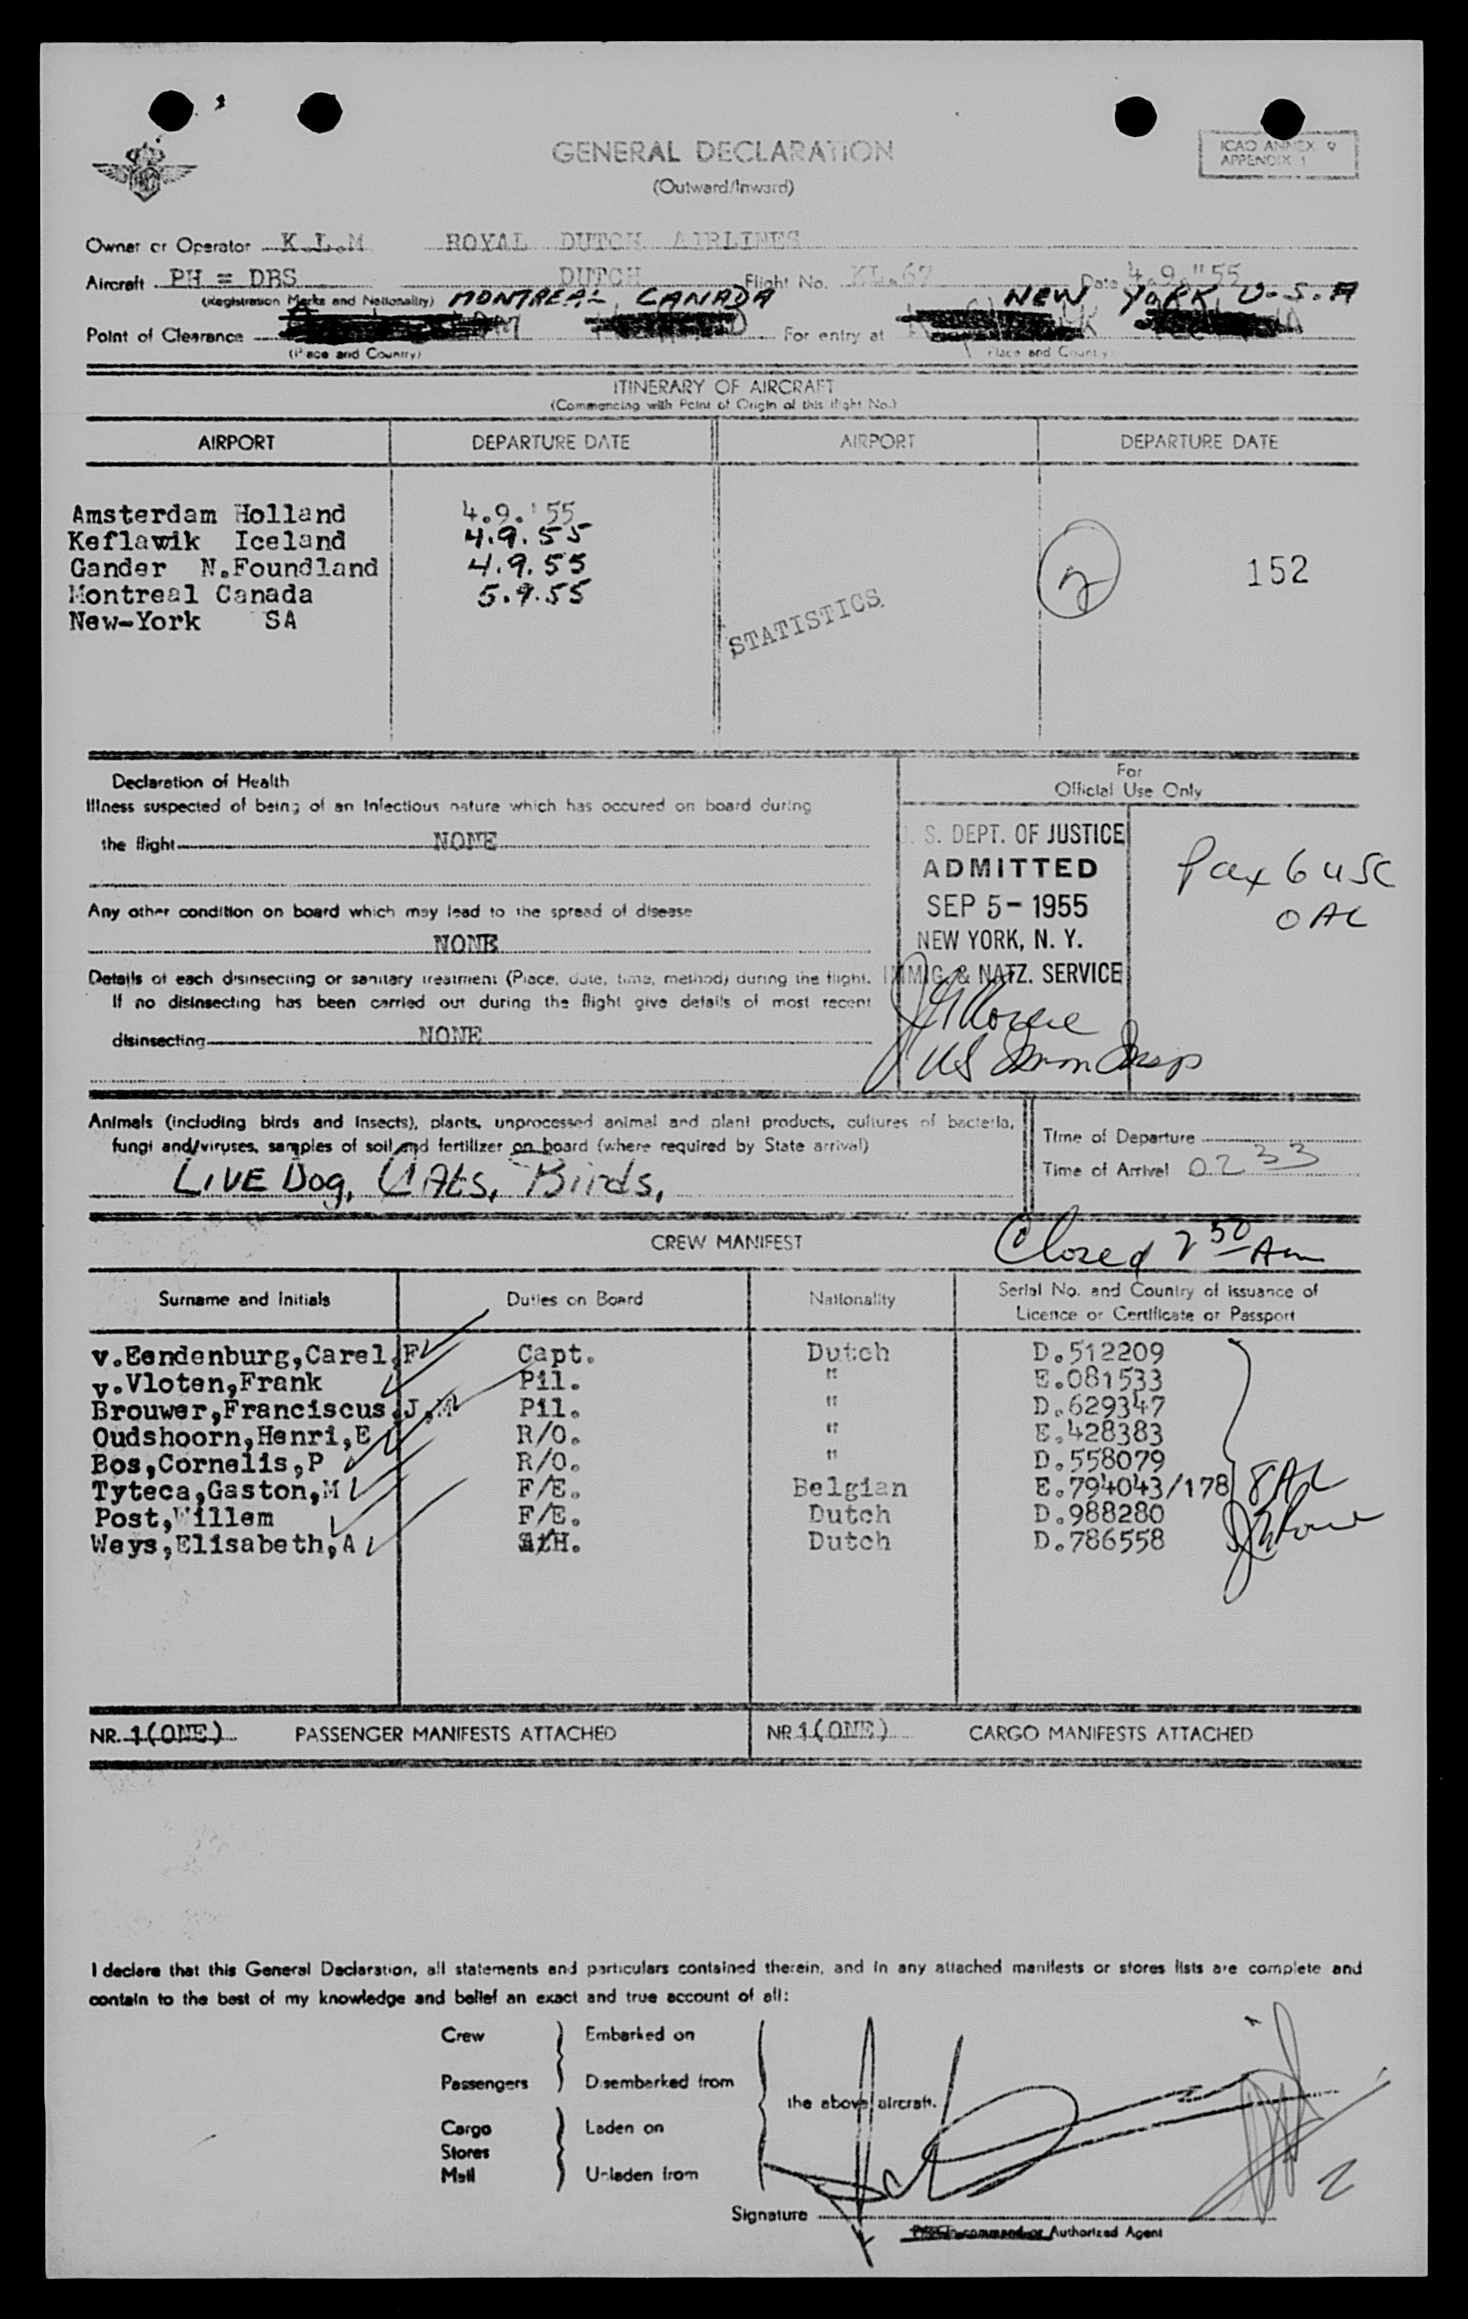 GENERAL DECLARATION
(Outward/Inward)
ICAO ANNEX 9
APPENDIX 1
Owner or Operator K.L.M ROYAL DUTCH AIRLINES
Aircraft PH = DBS DUTCH Flight No. KL.67 Date 4.9."55
(Registration Marks and Nationality) MONTREAL, CANADA NEW YORK, U.S.A
Point of Clearance For entry at
(Place and Country) Place and Country
ITINERARY OF AIRCRAFT
(Commencing with Point of Origin of this flight No.)
AIRPORT DEPARTURE DATE AIRPORT DEPARTURE DATE
Amsterdam Holland 4.9.'55
Keflawik Iceland 4.9.55
Gander N.Foundland 4.9.55 2 152
Montreal Canada 5.9.55
New-York SA
STATISTICS
Declaration of Health
Illness suspected of being of an infectious nature which has occured on board during
the flight NONE
Any other condition on board which may lead to the spread of disease
NONE
Details of each disinsecting or sanitary treatment (Place, date, time, method) during the flight.
If no disinsecting has been carried out during the flight give details of most recent
disinsecting NONE
For
Official Use Only
S. DEPT. OF JUSTICE
ADMITTED
SEP 5 - 1955
NEW YORK, N. Y.
IMMIG. & NATZ. SERVICE
US Immn Insp
Pax 6 USC
0 AL
Animals (including birds and insects), plants, unprocessed animal and plant products, cultures of bacteria,
fungi and/viruses, samples of soil and fertilizer on board (where required by State arrival)
LIVE Dog, CATS, Birds,
Time of Departure
Time of Arrival 0233
CREW MANIFEST Closed 2 50 Am
Surname and Initials Duties on Board Nationality Serial No. and Country of issuance of
Licence or Certificate or Passport
v.Eendenburg,Carel,F Capt. Dutch D.512209
v.Vloten,Frank Pil. " E.081533
Brouwer,Franciscus,J,M Pil. " D.629347
Oudshoorn,Henri,E R/O. " E.428383
Bos,Cornelis,P R/O. " D.558079
Tyteca,Gaston,M F/E. Belgian E.794043/178 8 AL
Post,Willem F/E. Dutch D.988280
Weys,Elisabeth,A A/H. Dutch D.786558
NR. 1(ONE) PASSENGER MANIFESTS ATTACHED NR 1(ONE) CARGO MANIFESTS ATTACHED
I declare that this General Declaration, all statements and particulars contained therein, and in any attached manifests or stores lists are complete and
contain to the best of my knowledge and belief an exact and true account of all:
Crew Embarked on
Passengers Disembarked from
the above aircraft.
Cargo Laden on
Stores
Mail Unladen from
2
Signature
Authorized Agent